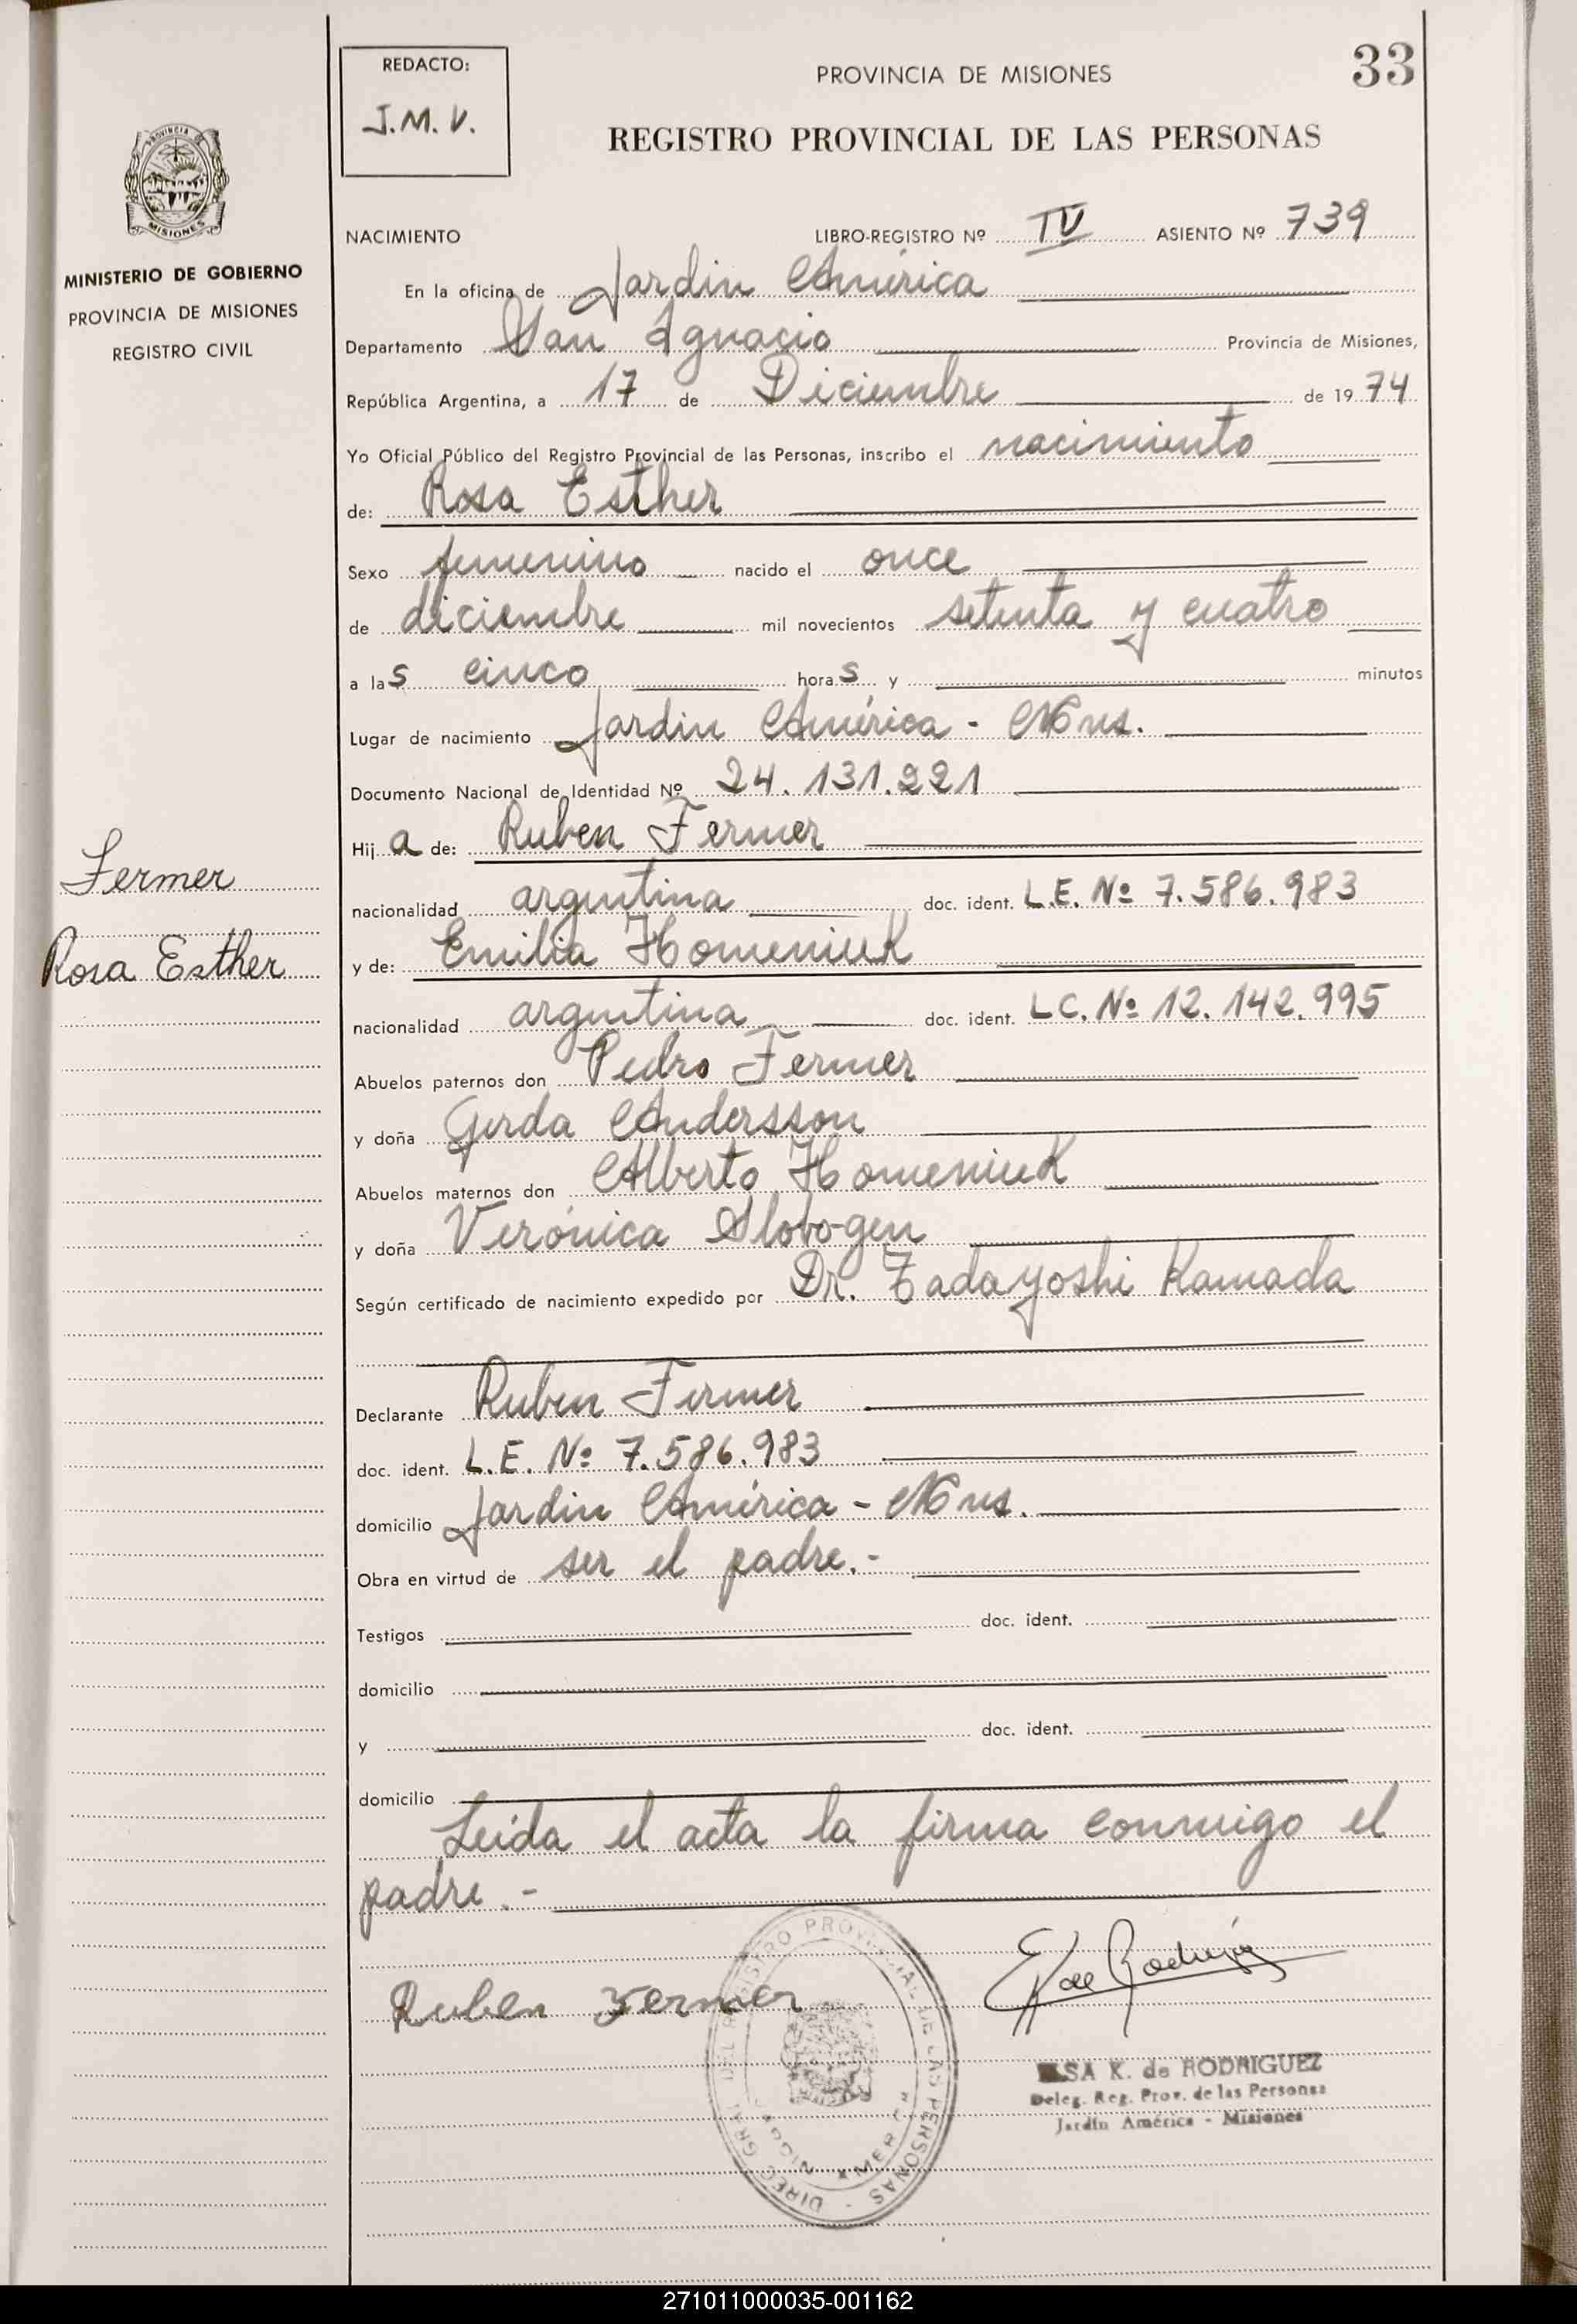 33
REDACTO:
J.M.V.
PROVINCIA DE MISIONES
REGISTRO PROVINCIAL DE LAS PERSONAS
PROVINCIA
MISIONES
MINISTERIO DE GOBIERNO
PROVINCIA DE MISIONES
REGISTRO CIVIL
NACIMIENTO LIBRO-REGISTRO Nº IV ASIENTO Nº 739
En la oficina de Jardin América
Departamento San Ignacio Provincia de Misiones,
República Argentina, a 17 de Diciembre de 1974
Yo Oficial Público del Registro Provincial de las Personas, inscribo el nacimiento
de: Rosa Esther
Sexo femenino nacido el once
de diciembre mil novecientos setenta y cuatro
a las cinco horas y minutos
Lugar de nacimiento Jardin América - Mns.
Documento Nacional de Identidad Nº 24.131.221
Hija de: Ruben Fermer
Fermer
nacionalidad argentina doc. ident. L.E. Nº 7.586.983
Rosa Esther
y de: Emilia Homeniuk
nacionalidad argentina doc. ident. L.C. Nº 12.142.995
Abuelos paternos don Pedro Fermer
y doña Gerda Andersson
Abuelos maternos don Alberto Homeniuk
y doña Verónica Slobogen
Según certificado de nacimiento expedido por Dr. Tadayoshi Kamada
Declarante Ruben Fermer
doc. ident. L.E. Nº 7.586.983
domicilio Jardin América - Mns.
Obra en virtud de ser el padre.-
Testigos doc. ident.
domicilio
y doc. ident.
domicilio
Leída el acta la firma conmigo el
padre.-
Ruben Fermer
E K de Rodriguez
DIREC. GRAL. DEL REGISTRO PROVINCIAL DE LAS PERSONAS -
JARDIN AMERICA
SA K. de RODRIGUEZ
Deleg. Reg. Prov. de las Personas
Jardín América - Misiones
271011000035-001162